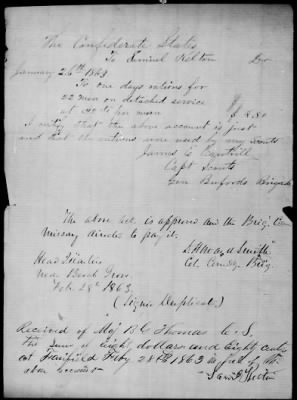 The Confederate States
To Lemuel Kelton Dr
January 26th 1863
To one days rations for
22 men on detached service
at 40 c per man $ 8.80
I certify that the above account is just
and that the rations were used by my scouts
James C
Capt Scouts
Gen Bufords Brigade
The above act. is approved and the Brig. Com
missary directed to pay it.
Head Quarters
Col. Comdg Brig.
near Beech Grove
Feb. 28th 1863.
(Signed Duplicates)
Received of Maj B. C. Thomas C. S.
the sum of eight dollars and eighty cents
at Fairfield Feby 28th 1863 in full of the
above account
Kelton